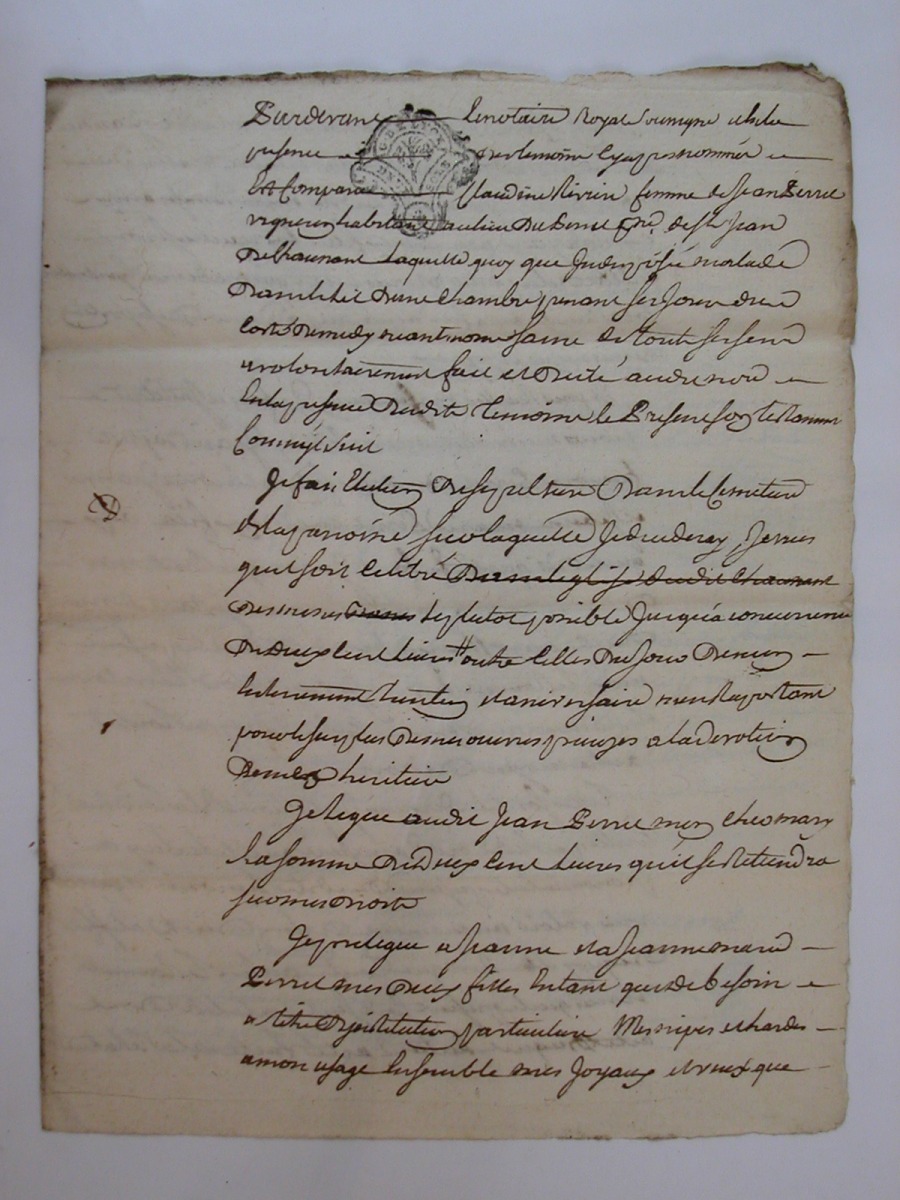 Pardevant le notaire Royal soussigné et de la
presence des temoins cy apres nommés
Est Comparue Claudine Rivier femme de Jean Perret
vigneron habitant au lieu Du Perret psse. de st Jean
De Chaussan Laquelle quoy que Indisposée malade
Dans le lit D'une Chambre prenant ses Jours du
Coté De neanmoins saine de tous ses sens
a volontairement fait et Dicté audit no.re
En la presence Desdits Temoins le Present son testament
Comme s'suit
Je fais Election De sepulture Dans le Cemetiere
de la paroisse sur laquelle Je decederay, Je veux
qu'il soit Celebré Dans leglise dudit Chaussan
Des messes le plutot possible Jusqu'a concurrence
De Deux Cent Livres outre Celles Des Jours De mon
Enterrement et aniversaire m'en Raportant
pour le surplus De mes oeuvres pieuzes a la Devotion
De mes heritiers
Je Legue audit Jean Perret mon Cher mary
La somme De Deux Cent Livres qu'il se Retiendra
sur mes Droits
Je prelegue a Jeanne et a Jeanne marie
Perret mes Deux filles En tant que de besoin
a titre D'institution particuliere Mes nipes et hardes
a mon usage Ensemble mes Joyaux et veux que